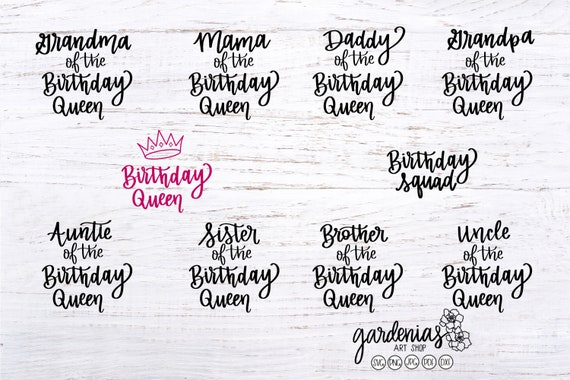 Grandma
of the
Birthday
Queen
Mama
of the
Birthday
Queen
Daddy
of the
Birthday
Queen
Grandpa
of the
Birthday
Queen
Birthday
Queen
Birthday
squad
Auntie
of the
Birthday
Queen
Sister
of the
Birthday
Queen
Brother
of the
Birthday
Queen
Uncle
of the
Birthday
Queen
gardenias
ART SHOP
SVG PNG JPG PDF DXF